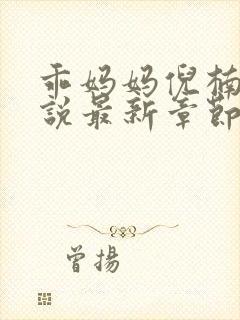 乖妈妈倪楠
説最新章節
曾揚